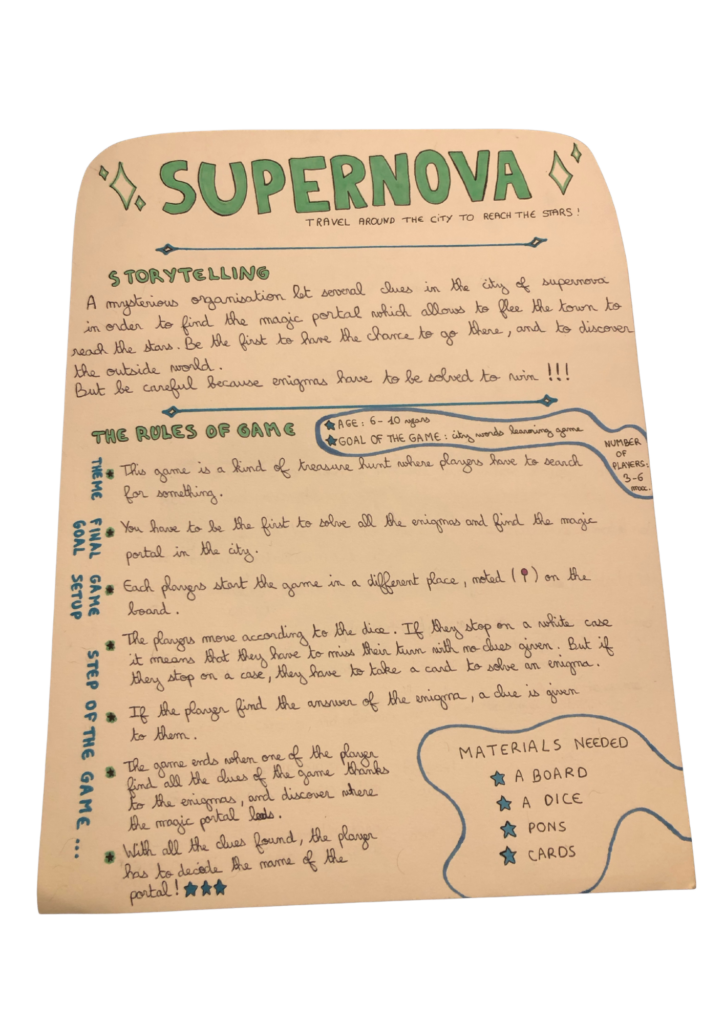 SUPERNOVA
TRAVEL AROUND THE CITY TO REACH THE STARS!
STORYTELLING
A mysterious organisation let several clues in the city of supernova
in order to find the magic portal which allows to flee the town to
reach the stars. Be the first to have the chance to go there, and to discover
the outside world.
But be careful because enigmas have to be solved to win !!!
THE RULES OF GAME
AGE: 6-10 years
GOAL OF THE GAME: city words learning game
NUMBER
OF
PLAYERS:
3-6
max.
THEME
This game is a kind of treasure hunt where players have to search
for something.
FINAL
GOAL
You have to be the first to solve all the enigmas and find the magic
portal in the city.
GAME
SETUP
Each players start the game in a different place, noted ( ) on the
board.
STEP OF THE GAME...
The players move according to the dice. If they stop on a white case
it means that they have to miss their turn with no clues given. But if
they stop on a case, they have to take a card to solve an enigma.
If the player find the answer of the enigma, a clue is given
to them.
The game ends when one of the player
find all the clues of the game thanks
to the enigmas, and discover where
the magic portal
With all the clues found, the player
has to decode the name of the
portal!
MATERIALS NEEDED
A BOARD
A DICE
PONS
CARDS